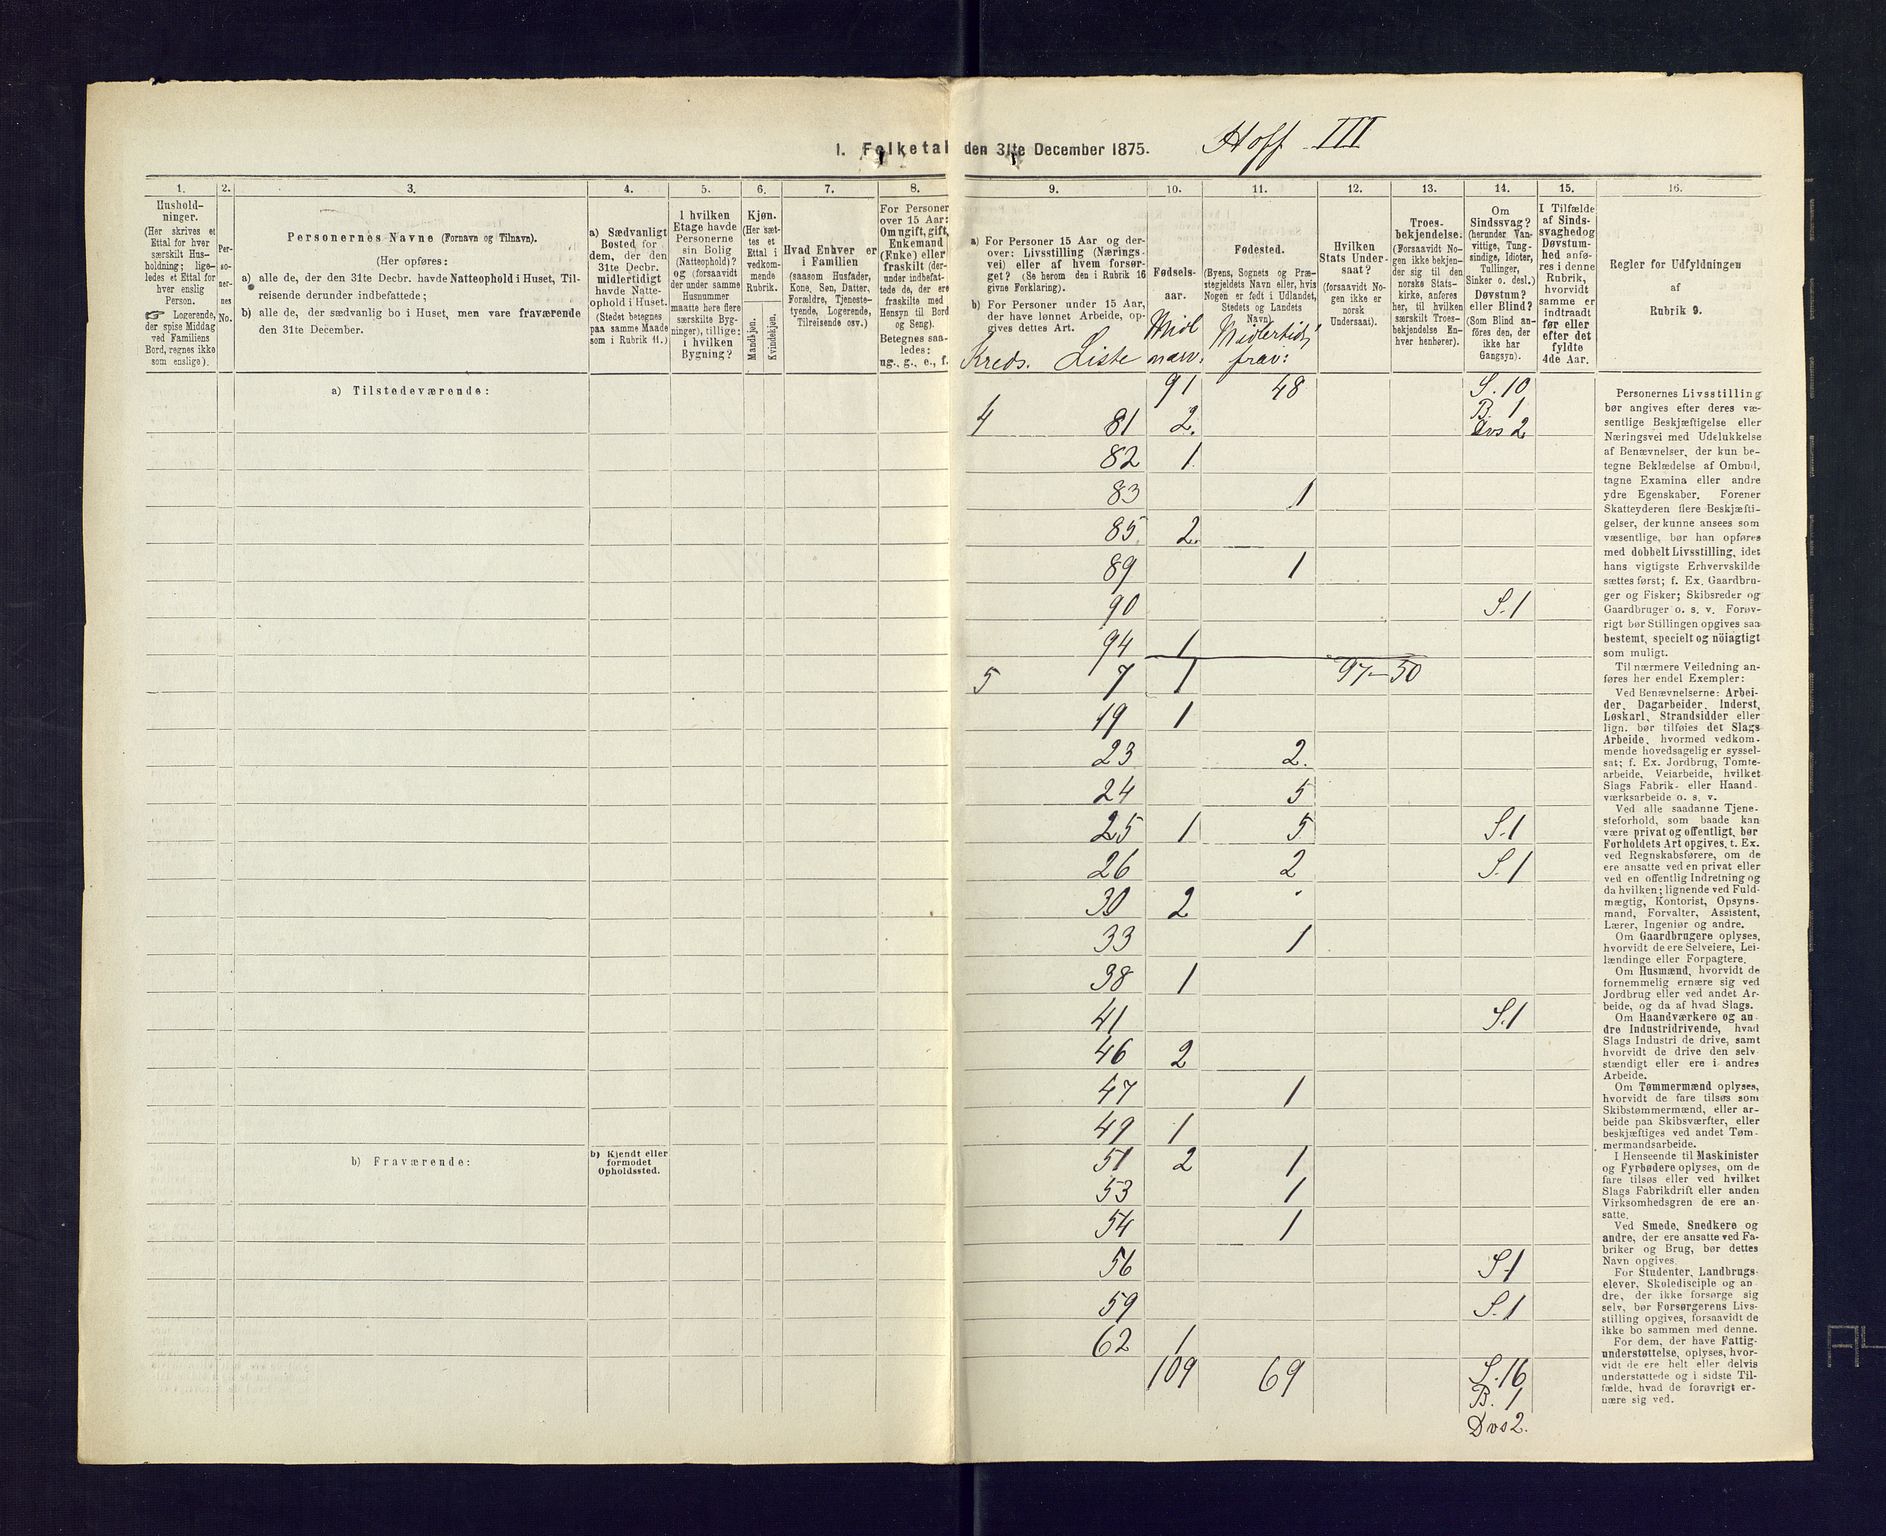 1. Folketal den 31te December 1875. Hoff III
1. 2. 3. 4. 5. 6. 7. 8. 9. 10. 11. 12. 13. 14. 15. 16.
Hushold-
ninger.
(Her skrives et
Ettal for hver
særskilt Hus-
holdning; lige-
ledes et Ettal for
hver enslig
Person.
☞ Logerende,
der spise Middag
ved Familiens
Bord, regnes ikke
som enslige).
Per-
so-
ner-
nes
No.
Personernes Navne (Fornavn og Tilnavn).
(Her opføres:
a) alle de, der den 31te Decbr. havde Natteophold i Huset, Til-
reisende derunder indbefattede;
b) alle de, der sædvanlig bo i Huset, men vare fraværende
den 31te December.
a) Sædvanligt
Bosted for
dem, der den
31te Decbr.
midlertidigt
havde Natte-
ophold i Huset.
(Stedet betegnes
paa samme Maade
som i Rubrik 11.)
I hvilken
Etage havde
Personerne
sin Bolig
(Natteophold)?
og (forsaavidt
der under samme
Husnummer
maatte høre flere
særskilte Byg-
ninger), tillige:
i hvilken
Bygning?
Kjøn.
(Her sæt-
tes et
Ettal i
vedkom-
mende
Rubrik.
Mandkjøn.
Kvindekjøn.
Hvad Enhver er
i Familien
(saasom Husfader,
Kone, Søn, Datter,
Forældre, Tjeneste-
tyende, Logerende,
Tilreisende osv.)
For Personer
over 15 Aar:
Om ugift, gift,
Enkemand
(Enke) eller
fraskilt (der-
under indbefat-
tede de, der ere
fraskilte med
Hensyn til Bord
og Seng).
Betegnes saa-
ledes:
ug., g., e., f.
a) For Personer 15 Aar og der-
over: Livsstilling (Nærings-
vei) eller af hvem forsør-
get? (Se herom den i Rubrik 16
givne Forklaring).
b) For Personer under 15 Aar,
der have lønnet Arbeide, op-
gives dettes Art.
Kreds. Liste
Fødsels-
aar.
Midl
nærv:
Fødested.
(Byens, Sognets og Præ-
stegjeldets Navn eller, hvis
Nogen er født i Udlandet,
Stedets og Landets
Navn).
Midlertid
frav:
Hvilken
Stats Under-
saat?
(forsaavidt No-
gen ikke er
norsk
Undersaat).
Troes-
bekjendelse.
(Forsaavidt No-
gen ikke bekjen-
der sig til den
norske Stats-
kirke, anføres
her, til hvilken
særskilt Troes-
bekjendelse En-
hver henhører).
Om
Sindssvag?
(herunder Van-
vittige, Tung-
sindige, Idioter,
Tullinger,
Sinker o. desl.)
Døvstum?
eller Blind?
(Som Blind an-
føres den, der
ikke har
Gangsyn).
I Tilfælde
af Sinds-
svaghed og
Døvstum-
hed anfø-
res i denne
Rubrik,
hvorvidt
samme er
indtraadt
før eller
efter det
fyldte
4de Aar.
Regler for Udfyldningen
af
Rubrik 9.
a) Tilstedeværende:
91 48 S. 10
B. 1
4 81 2. Dvs 2
82 1.
83 1
85. 2.
89 1
90 S. 1
94 1
5 7 1 97–50
19 1
23 2.
24 5
25 1 5 S. 1
26 2 S. 1
30 2
33 1
38 1
41 S. 1
46 2
47 1
49 1
b) Fraværende:
b) Kjendt eller
formodet
Opholdssted.
51 2 1
53 1
54 1
56 S. 1
59 S. 1
62 1
109 69 S. 16
B. 1
Dvs 2.
Personernes Livsstilling
bør angives efter deres væ-
sentlige Beskjæftigelse eller
Næringsvei med Udelukkelse
af Benævnelser, der kun be-
tegne Beklædelse af Ombud,
tagne Examina eller andre
ydre Egenskaber. Forener
Skatteyderen flere Beskjæfti-
gelser, der kunne ansees som
væsentlige, bør han opføres
med dobbelt Livsstilling, idet
hans vigtigste Erhvervskilde
sættes først; f. Ex. Gaardbru-
ger og Fisker; Skibsreder og
Gaardbruger o. s. v. Forøv-
rigt bør Stillingen opgives saa
bestemt, specielt og nöiagtigt
som muligt.
Til nærmere Veiledning an-
føres her endel Exempler:
Ved Benævnelserne: Arbei-
der, Dagarbeider, Inderst,
Løskarl, Strandsidder eller
lign. bør tilføies det Slags
Arbeide, hvormed vedkom-
mende hovedsagelig er syssel-
sat; f. Ex. Jordbrug, Tomte-
arbeide, Veiarbeide, hvilket
Slags Fabrik- eller Haand-
værksarbeide o. s. v.
Ved alle saadanne Tjene-
steforhold, som baade kan
være privat og offentligt, bør
Forholdets Art opgives, t. Ex.
ved Regnskabsførere, om de
ere ansatte ved en privat eller
ved en offentlig Indretning og
da hvilken; lignende ved Fuld-
mægtig, Kontorist, Opsyns-
mand, Forvalter, Assistent,
Lærer, Ingeniør og andre.
Om Gaardbrugere oplyses,
hvorvidt de ere Selveiere, Lei-
lændinge eller Forpagtere.
Om Husmænd, hvorvidt de
fornemmelig ernære sig ved
Jordbrug eller ved andet Ar-
beide, og da af hvad Slags.
Om Haandværkere og an-
dre Industridrivende, hvad
Slags Industri de drive, samt
hvorvidt de drive den selv-
stændigt eller ere i andres
Arbeide.
Om Tømmermænd oplyses,
hvorvidt de fare tilsøs som
Skibstømmermænd, eller ar-
beide paa Skibsværfter, eller
beskjæftiges ved andet Tøm-
mermandsarbeide.
I Henseende til Maskinister
og Fyrbødere oplyses, om de
fare tilsøs eller ved hvilket
Slags Fabrikdrift eller anden
Virksomhedsgren de ere an-
satte.
Ved Smede, Snedkere og
andre, der ere ansatte ved Fa-
briker og Brug, bør dettes
Navn opgives.
For Studenter, Landbrugs-
elever, Skoledisciple og an-
dre, der ikke forsørge sig
selv, bør Forsørgerens Livs-
stilling opgives, forsaavidt de
ikke bo sammen med denne.
For dem, der have Fattig-
understøttelse, oplyses, hvor-
vidt de ere helt eller delvis
understøttede og i sidste Til-
fælde, hvad de forøvrigt er-
nære sig ved.